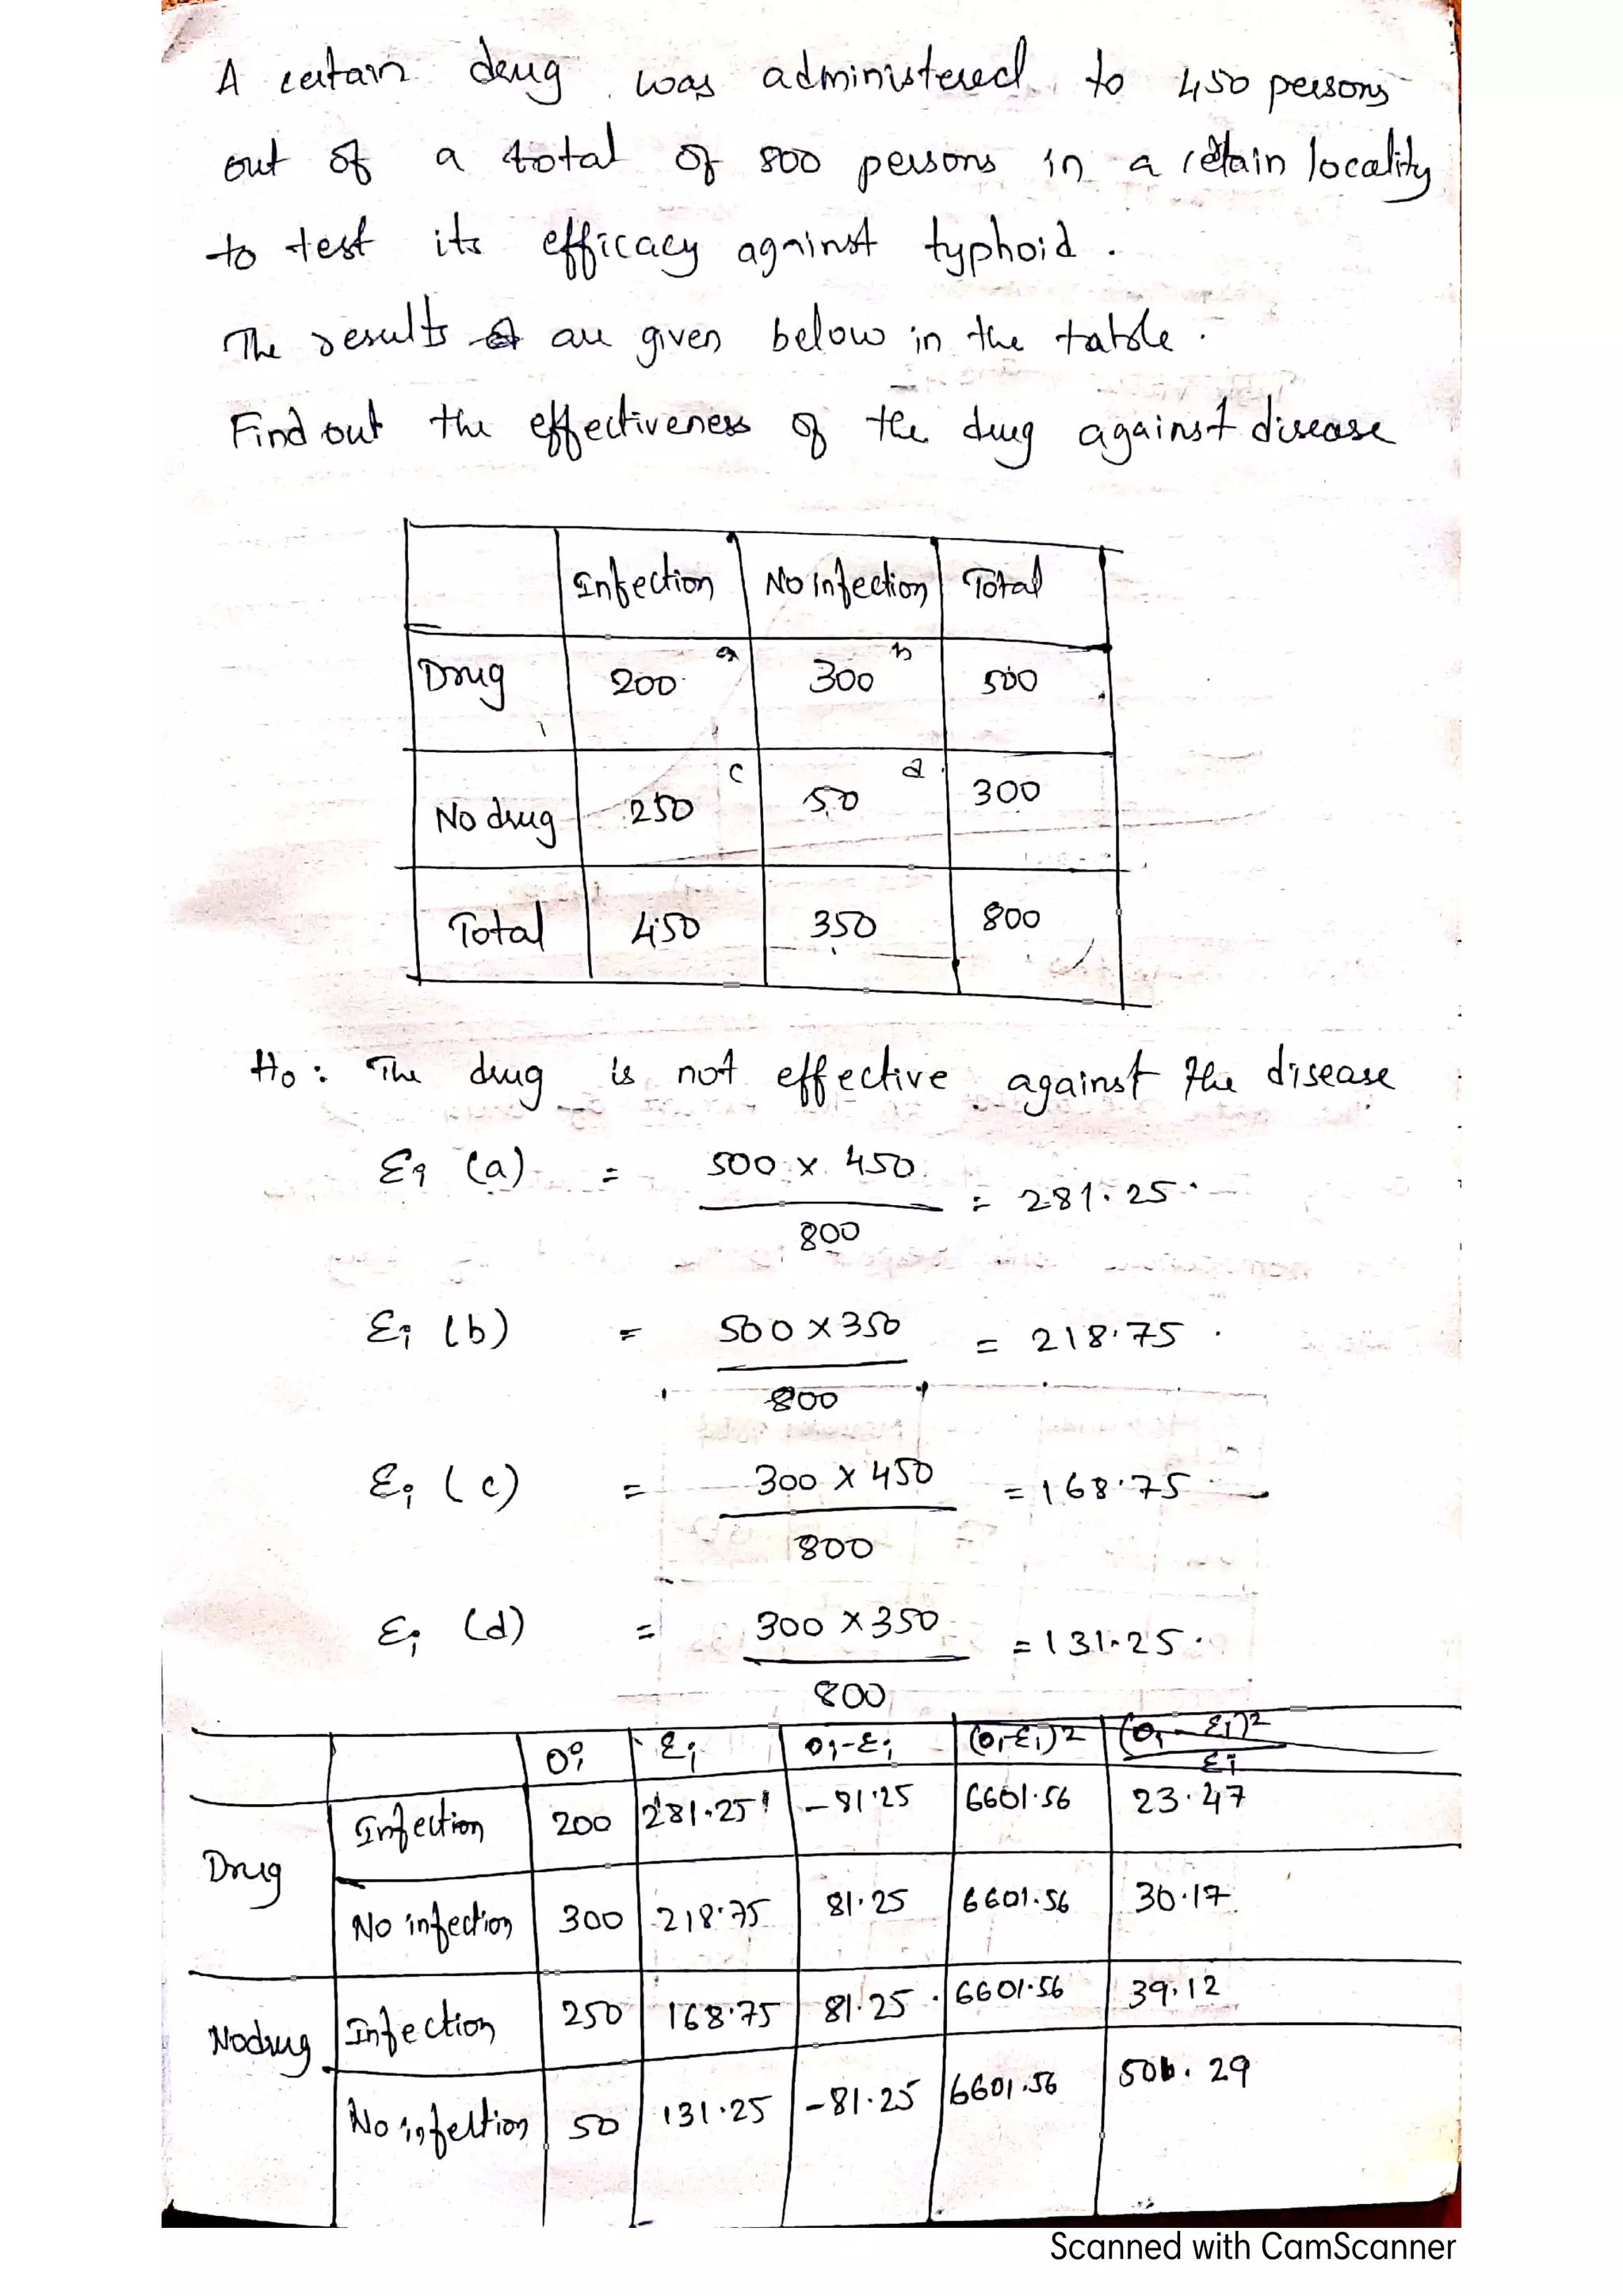 A certain drug was administered to 450 persons
out of a total of 800 persons in a certain locality
to test its efficacy against typhoid.
The results are given below in the table.
Find out the effectiveness of the drug against disease
Infection No Infection Total
Drug 200 a 300 b 500
No drug 250 c 50 d 300
Total 450 350 800
H0 : The drug is not effective against the disease
Ei (a) = 500 x 450 / 800 = 281.25
Ei (b) = 500 x 350 / 800 = 218.75
Ei (c) = 300 x 450 / 800 = 168.75
Ei (d) = 300 x 350 / 800 = 131.25
Oi Ei Oi-Ei (Oi-Ei)2 (Oi-Ei)2 / Ei
Drug Infection 200 281.25 -81.25 6601.56 23.47
No infection 300 218.75 81.25 6601.56 30.17
No drug Infection 250 168.75 81.25 6601.56 39.12
No infection 50 131.25 -81.25 6601.56
Scanned with CamScanner